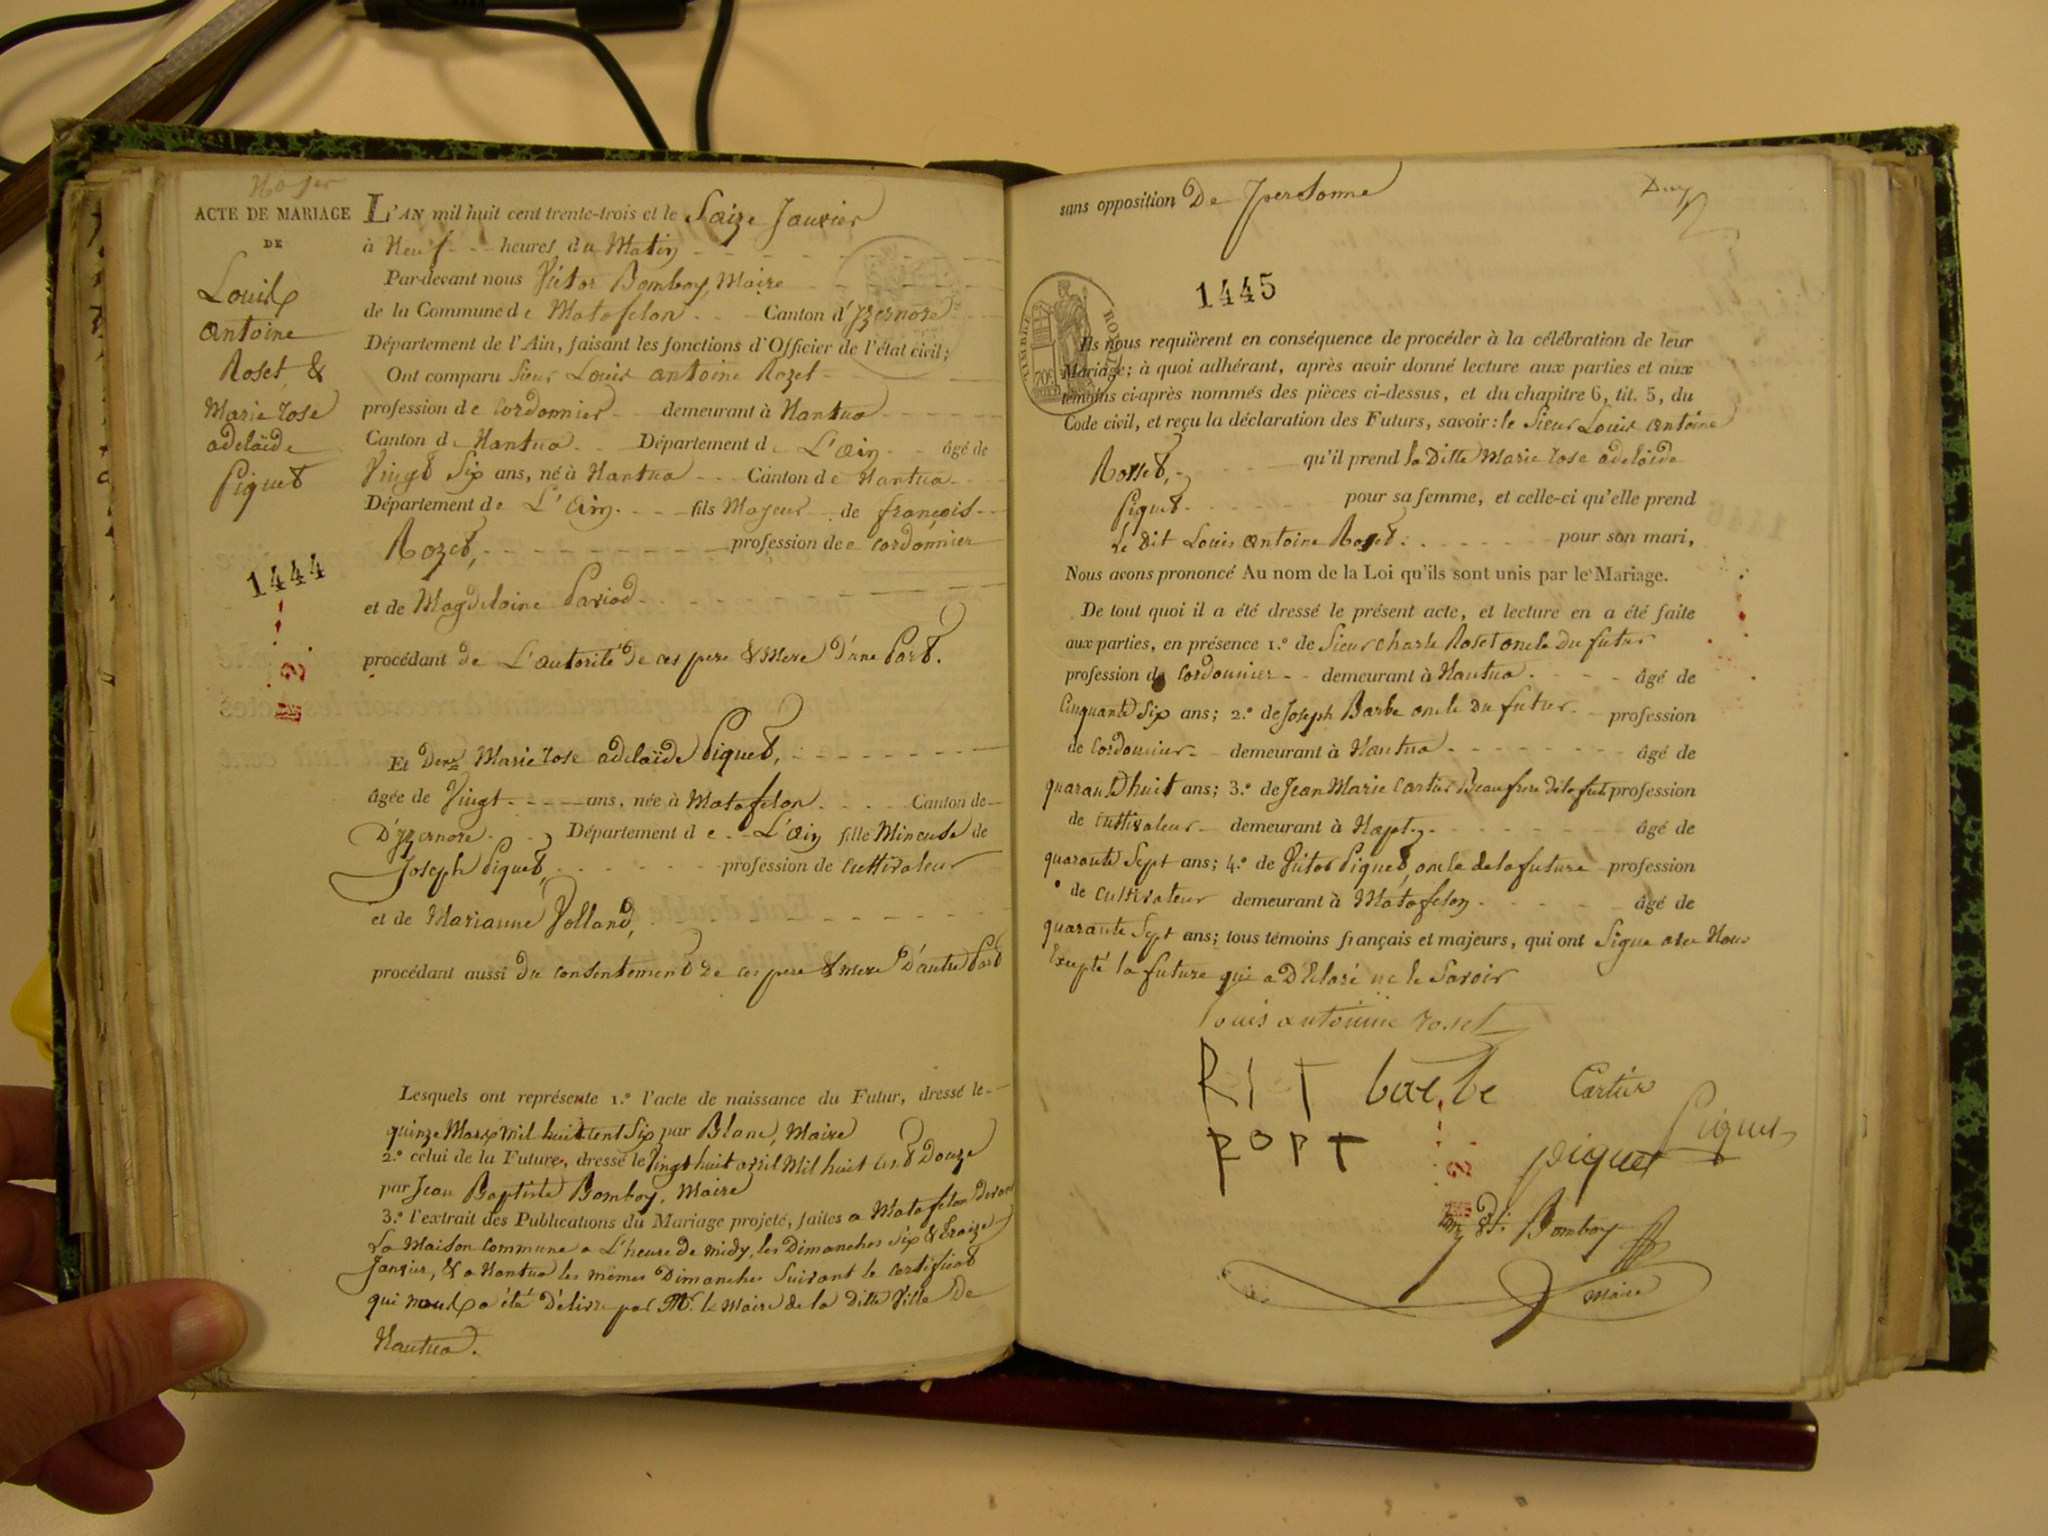 ACTE DE MARIAGE
DE
Louis
antoine
Roset &
Marie rose
adelaïde
Piquet
1444
L'AN mil huit cent trente-trois et le Saize Janvier
à Neuf heures du Matin
Par-devant nous Victor Bomboy, Maire
de la Commune de Matafelon Canton d'Yzernore
Département de l'Ain, faisant les fonctions d'Officier de l'état civil;
Ont comparu Sieur Louis antoine Rozet
profession de Cordonnier demeurant à Nantua
Canton de Nantua Département de L'ain âgé de
Vingt Six ans, né à Nantua Canton de Nantua
Département de L'Ain fils Majeur de françois
Rozet, profession de Cordonnier
et de Magdelaine Pariod
procédant de L'autorité de ces pere & Mere D'une Part.
Et Marie rose adelaïde Piquet,
âgée de Vingt ans, née à Matafelon Canton de
D'yzernore Département de L'ain fille Mineuse de
Joseph Piquet, profession de Cultivateur
et de Marianne Jolland,
procédant aussi du Consentement de ces pere & mere D'autre Part
Lesquels ont représenté 1.º l'acte de naissance du Futur, dressé le
quinze Mars Mil huit Cent Six par Blanc, Maire
2.º celui de la Future, dressé le Vingt huit avril Mil huit Cent Douze
par Jean Baptiste Bomboy, Maire
3.º l'extrait des Publications du Mariage projeté, faites a Matafelon Devant
La Maison Commune a L'heure de midy, les Dimanches Six & Traize
Janvier, & a Nantua les mêmes Dimanches Suivant le Certificat
qui nous a été Délivre par Mr. le Maire de la Ditte Ville De
Nantua.
sans opposition De Personne
1445
TIMBRE ROYAL
70c
Ils nous requièrent en conséquence de procéder à la célébration de leur
Mariage; à quoi adhérant, après avoir donné lecture aux parties et aux
témoins ci-après nommés des pièces ci-dessus, et du chapitre 6, tit. 5, du
Code civil, et reçu la déclaration des Futurs, savoir: le Sieur Louis antoine
Rosset, qu'il prend la Ditte Marie rose adelaïde
Piquet pour sa femme, et celle-ci qu'elle prend
Le Dit Louis antoine Roset pour son mari,
Nous avons prononcé Au nom de la Loi qu'ils sont unis par le Mariage.
De tout quoi il a été dressé le présent acte, et lecture en a été faite
aux parties, en présence 1.º de Sieur charle Roset oncle Du futur
profession de Cordonnier demeurant à Nantua âgé de
Cinquante Six ans; 2.º de Joseph Barbe oncle Du futur profession
de Cordonnier demeurant à Nantua âgé de
quarante huit ans; 3.º de Jean Marie Cartier Beaufrere de la fut profession
de Cultivateur demeurant à âgé de
quarante Sept ans; 4.º de Victor Piquet, oncle de la future profession
de Cultivateur demeurant à Matafelon âgé de
quarante Sept ans; tous témoins français et majeurs, qui ont Signe avec Nous
Excepté la future qui a Déclaré ne le Savoir
Louis antoinne roset
barbe Cartier
piquet Piquet
Bomboy
Maire